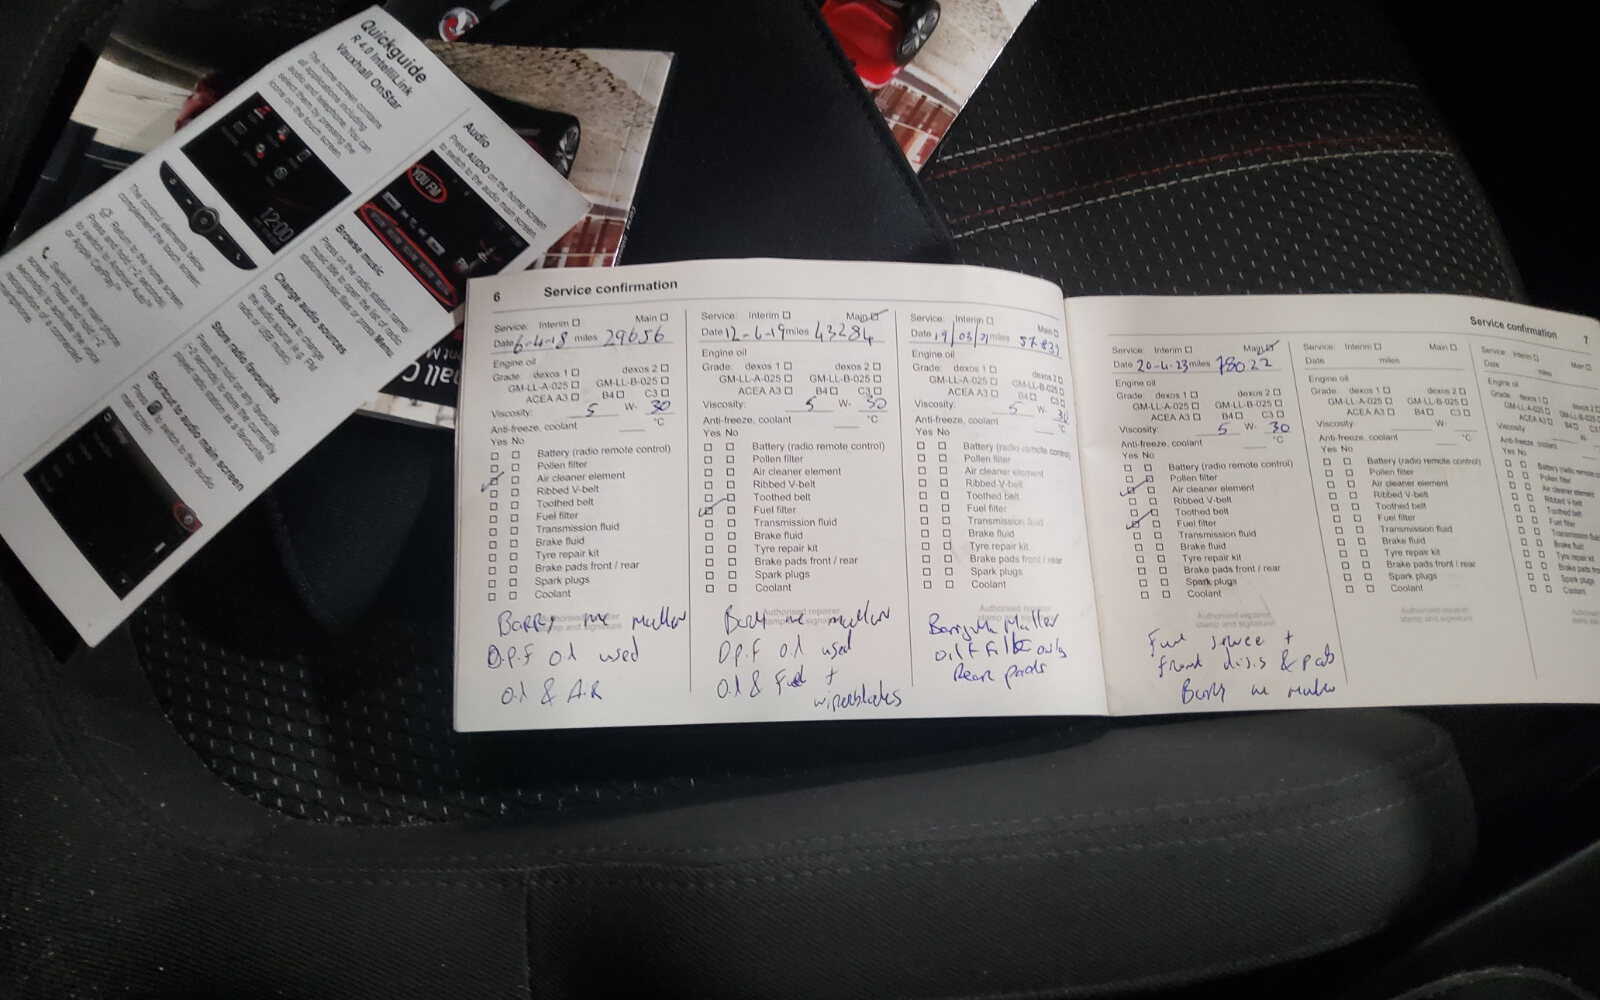 Quickguide
R 4.0 IntelliLink
Vauxhall OnStar
The home screen contains
all applications including
audio and telephone. You can
select them by pressing the
icons on the touch screen.
12:00
The control elements below
complement the touch screen.
Return to the home screen
Press and hold (~2 seconds)
to switch to Android Auto™
or Apple CarPlay™
Switch to the main phone
screen. Press and hold (~2
seconds) to activate the voice
recognition of a connected
smartphone.
Audio
Press AUDIO on the home screen
to switch to the audio main screen.
YOU FM
Browse music
Press on the radio station name/
music title to open the list of radio
stations/music files or press Menu.
Change audio sources
Press Source to change
the audio source (e.g. FM
radio or USB music).
Store radio favourites
Press and hold on any favourite
(~2 seconds) to store the currently
played radio station as a favourite.
Shortcut to audio main screen
Press to switch to the audio
main screen.
6 Service confirmation
Service: Interim Main
Date 6-4-18 miles 29656
Engine oil
Grade: dexos 1 dexos 2
GM-LL-A-025 GM-LL-B-025
ACEA A3 B4 C3
Viscosity: 5 W- 30
Anti-freeze, coolant °C
Yes No
Battery (radio remote control)
Pollen filter
Air cleaner element
Ribbed V-belt
Toothed belt
Fuel filter
Transmission fluid
Brake fluid
Tyre repair kit
Brake pads front / rear
Spark plugs
Coolant
Authorised repairer
stamp and signature
Barry mc mullan
D.P.F oil used
oil & Air
Service: Interim Main
Date 12-4-19 miles 43284
Engine oil
Grade: dexos 1 dexos 2
GM-LL-A-025 GM-LL-B-025
ACEA A3 B4 C3
Viscosity: 5 W- 30
Anti-freeze, coolant °C
Yes No
Battery (radio remote control)
Pollen filter
Air cleaner element
Ribbed V-belt
Toothed belt
Fuel filter
Transmission fluid
Brake fluid
Tyre repair kit
Brake pads front / rear
Spark plugs
Coolant
Authorised repairer
stamp and signature
Barry mc mullan
D.P.F oil used
Oil & Fuel +
wiperblades
Service: Interim Main
Date 19/03/21 miles
Engine oil
Grade: dexos 1 dexos 2
GM-LL-A-025 GM-LL-B-025
ACEA A3 B4 C3
Viscosity: 5 W- 30
Anti-freeze, coolant °C
Yes No
Battery (radio remote control)
Pollen filter
Air cleaner element
Ribbed V-belt
Toothed belt
Fuel filter
Transmission fluid
Brake fluid
Tyre repair kit
Brake pads front / rear
Spark plugs
Coolant
Authorised repairer
stamp and signature
Barry Mc Mullan
oil + Filter only
Rear pads
Service confirmation 7
Service: Interim Main
Date 20-4-23 miles 78022
Engine oil
Grade: dexos 1 dexos 2
GM-LL-A-025 GM-LL-B-025
ACEA A3 B4 C3
Viscosity: 5 W- 30
Anti-freeze, coolant °C
Yes No
Battery (radio remote control)
Pollen filter
Air cleaner element
Ribbed V-belt
Toothed belt
Fuel filter
Transmission fluid
Brake fluid
Tyre repair kit
Brake pads front / rear
Spark plugs
Coolant
Authorised repairer
stamp and signature
Full service +
front discs & pads
Barry mc mullan
Service: Interim Main
Date miles
Engine oil
Grade: dexos 1 dexos 2
GM-LL-A-025 GM-LL-B-025
ACEA A3 B4 C3
Viscosity: W-
Anti-freeze, coolant °C
Yes No
Battery (radio remote control)
Pollen filter
Air cleaner element
Ribbed V-belt
Toothed belt
Fuel filter
Transmission fluid
Brake fluid
Tyre repair kit
Brake pads front / rear
Spark plugs
Coolant
Authorised repairer
stamp and signature
Service: Interim Main
Date miles
Engine oil
Grade: dexos 1 dexos 2
GM-LL-A-025
ACEA A3 B4
Viscosity: W-
Anti-freeze, coolant
Yes No
Battery (radio remote
Pollen filter
Air cleaner element
Ribbed V-belt
Toothed belt
Fuel filter
Transmission
Brake fluid
Tyre repair kit
Brake pads
Spark plugs
Coolant